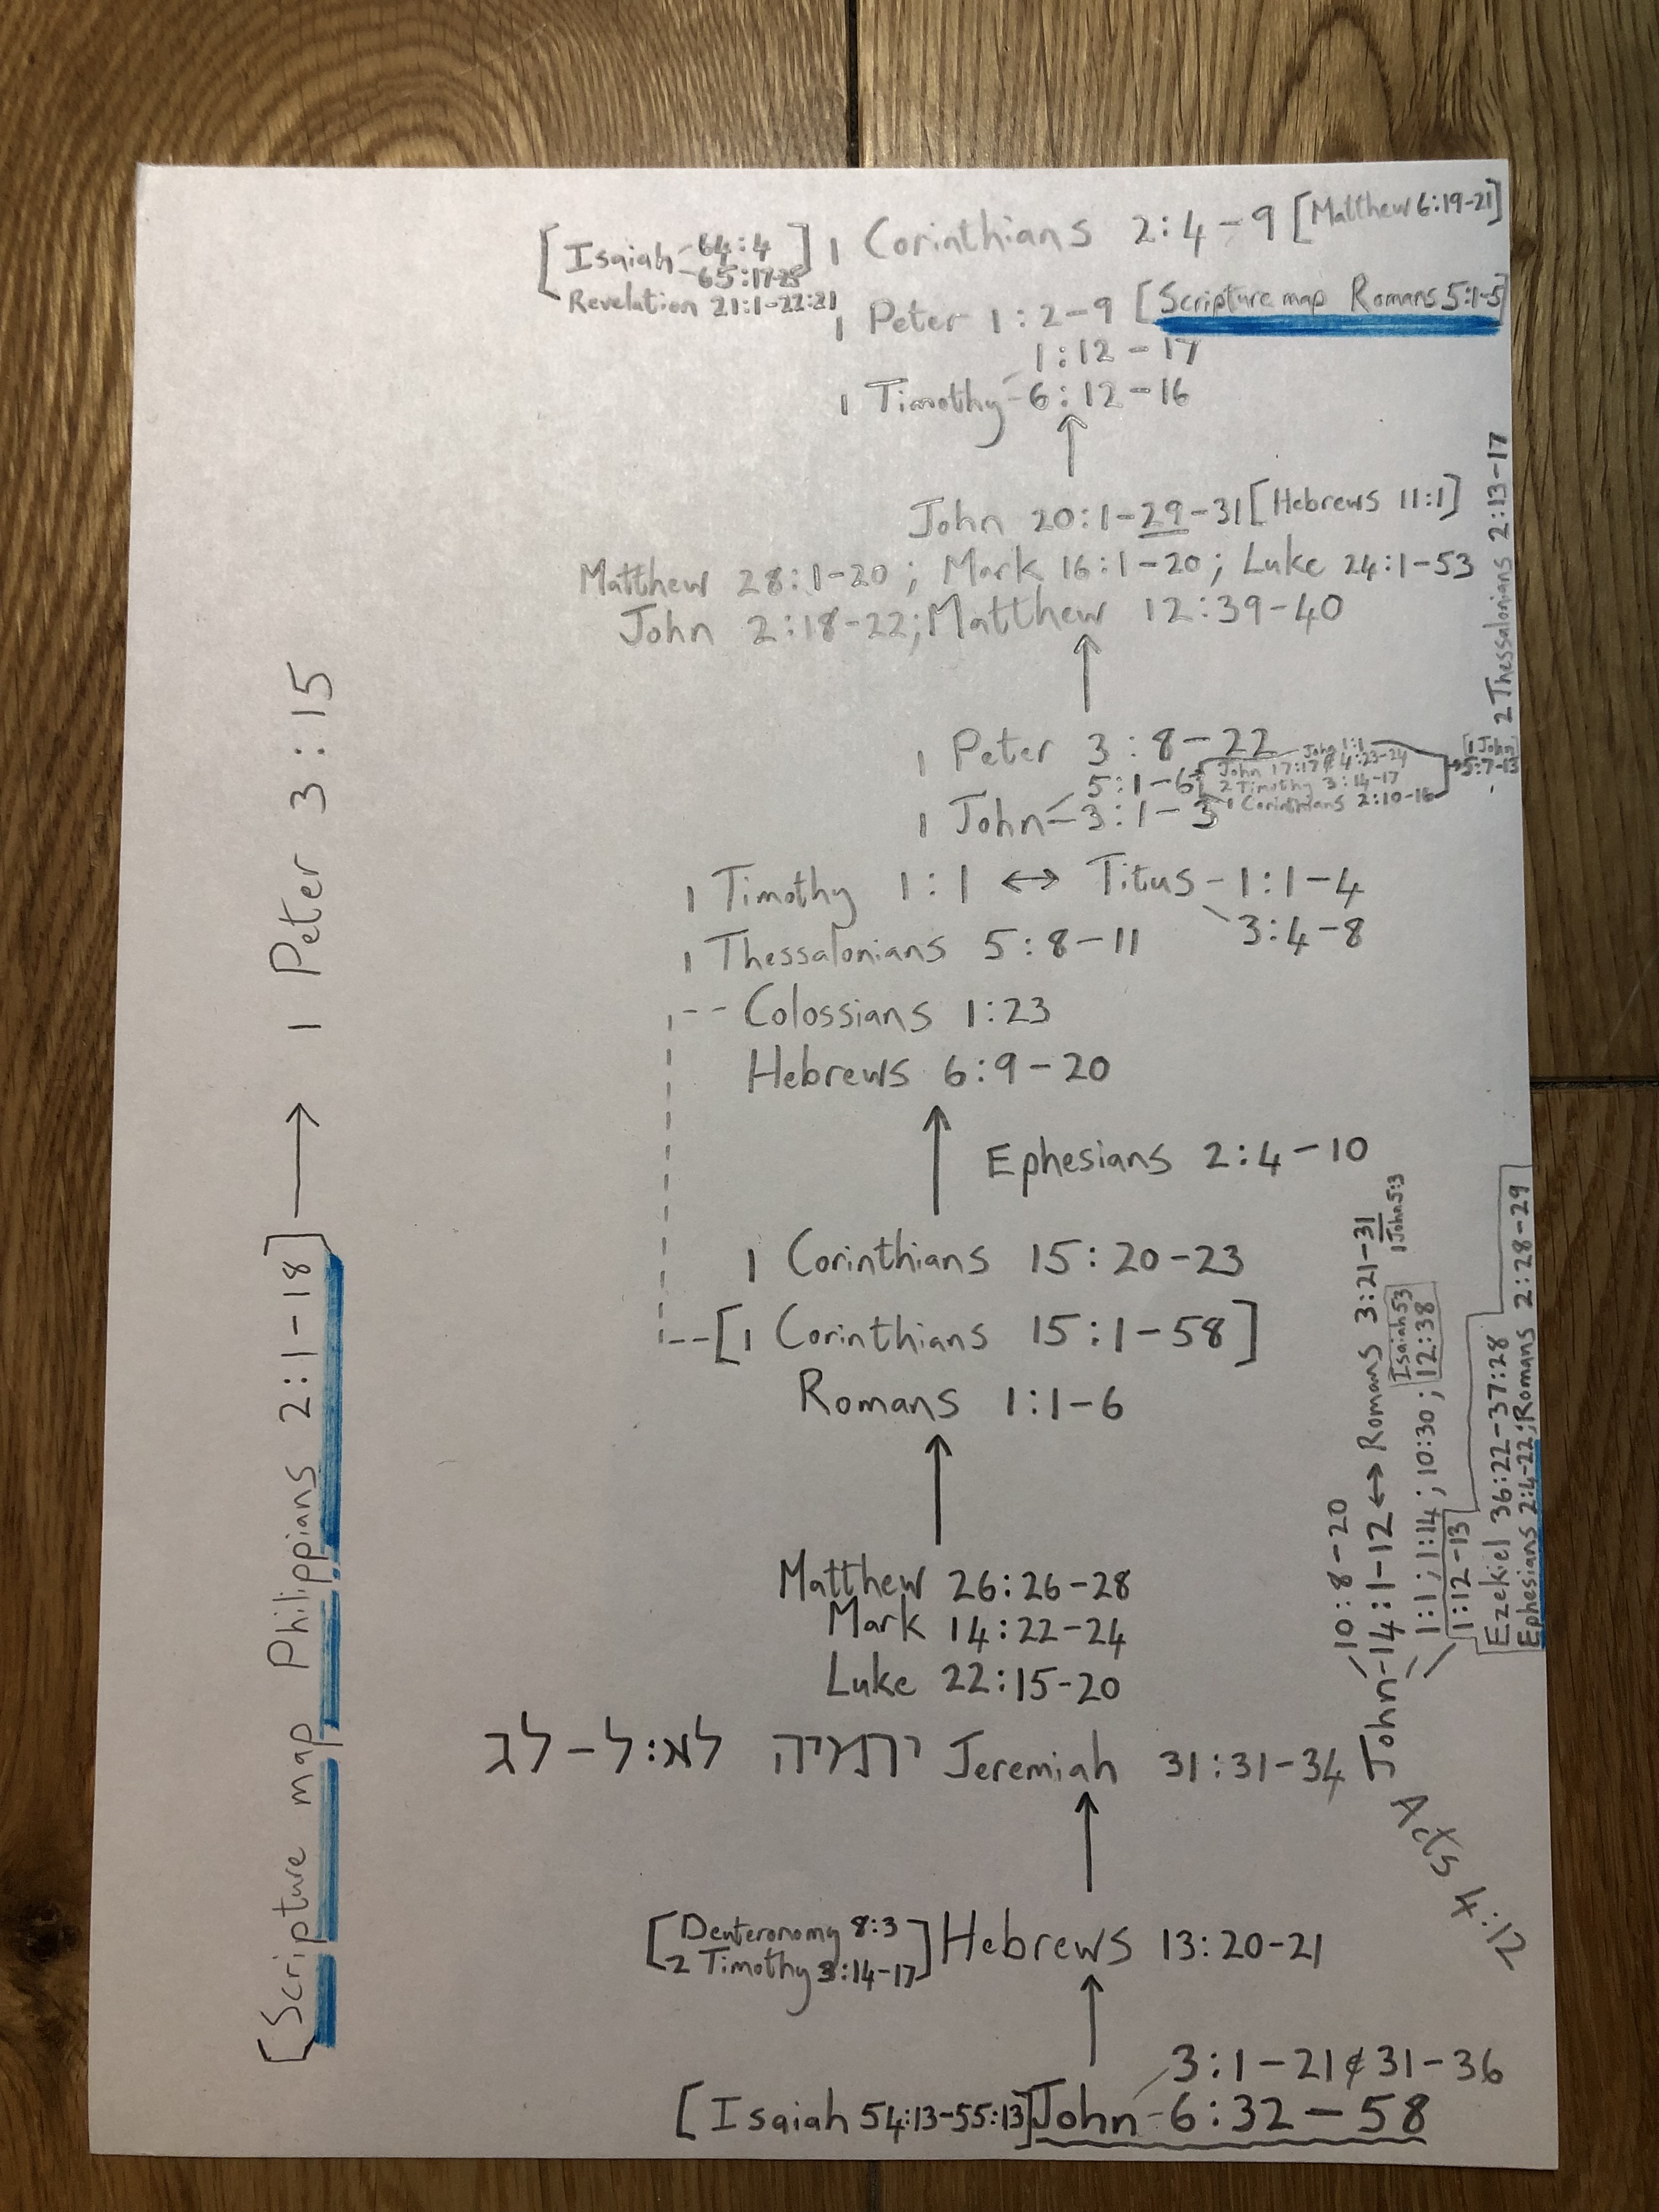 [Isaiah - 64:4] 1 Corinthians 2:4-9 [Matthew 6:19-21]
- 65:17-25
Revelation 21:1-22:21
1 Peter 1:2-9 [Scripture map Romans 5:1-5]
1:12-17
1 Timothy - 6:12-16
↑
John 20:1-29-31 [Hebrews 11:1]
Matthew 28:1-20; Mark 16:1-20; Luke 24:1-53
John 2:18-22; Matthew 12:39-40
↑
2 Thessalonians 2:13-17
1 Peter 3:8-22
John 1:1
John 17:17 & 4:23-24
2 Timothy 3:14-17
1 Corinthians 2:10-16
[1 John
5:7-13
5:1-6
1 John - 3:1-3
1 Timothy 1:1 ↔ Titus - 1:1-4
3:4-8
1 Thessalonians 5:8-11
Colossians 1:23
Hebrews 6:9-20
↑
Ephesians 2:4-10
1 Corinthians 15:20-23
[1 Corinthians 15:1-58]
Romans 1:1-6
↑
Matthew 26:26-28
Mark 14:22-24
Luke 22:15-20
ירמיה לא:ל-לג Jeremiah 31:31-34
↑
[Deuteronomy 8:3
2 Timothy 3:14-17] Hebrews 13:20-21
↑
3:1-21 & 31-36
[Isaiah 54:13-55:13] John - 6:32-58
[Scripture map Philippians 2:1-18] → 1 Peter 3:15
10:8-20
John - 14:1-12 ↔ Romans 3:21-31
1 John 5:3
Isaiah 53
1:1; 1:14; 10:30; 12:38
1:12-13
Ezekiel 36:22-37:28
Ephesians 2:4-22; Romans 2:28-29
Acts 4:12